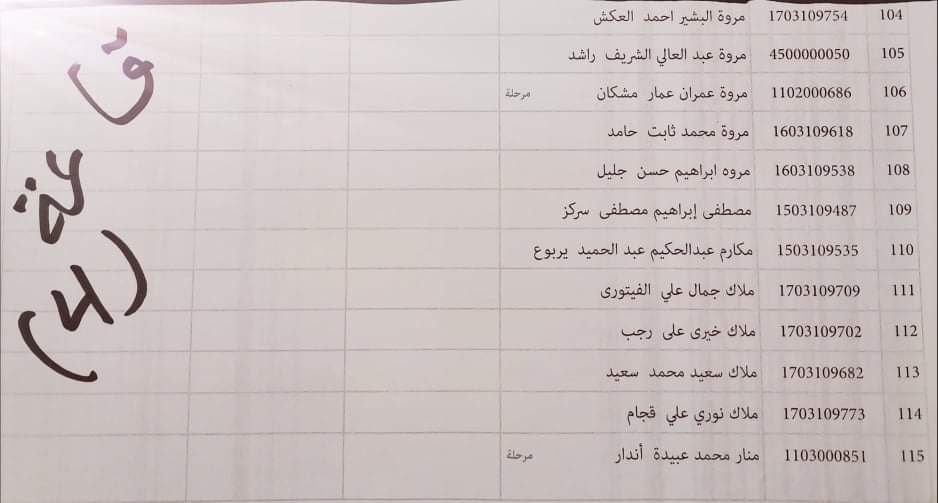 104 1703109754 مروة البشير احمد العكش
105 4500000050 مروة عبد العالي الشريف راشد
106 1102000686 مروة عمران عمار مشكان مرحلة
107 1603109618 مروة محمد ثابت حامد
108 1603109538 مروه ابراهيم حسن جليل
109 1503109487 مصطفى إبراهيم مصطفى سركز
110 1503109535 مكارم عبدالحكيم عبد الحميد يربوع
111 1703109709 ملاك جمال علي الفيتورى
112 1703109702 ملاك خيرى على رجب
113 1703109682 ملاك سعيد محمد سعيد
114 1703109773 ملاك نوري علي قجام
115 1103000851 منار محمد عبيدة أندار مرحلة
(4)